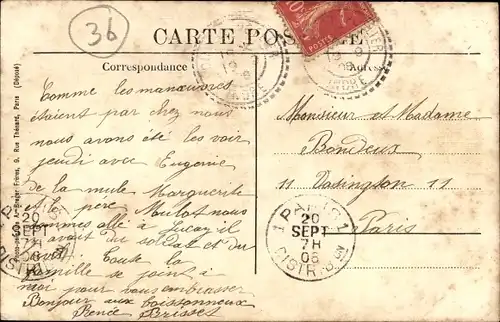 36
CARTE POSTALE
Correspondance
Adresse
10
POSTES
INDRE
INDRE
Comme les manœuvres
étaient par chez nous
nous avons été les voir
jeudi avec Eugénie
de la mule Marguerite
et le père Moulot nous
sommes allé à Luçay il
y avait du soldat et du
Toute la
famille se joint à
moi pour vous embrasser
Bonjour aux boissonneux
Renée Brisset
Monsieur et Madame
Bondeux
11 Vasingston 11
Paris
1 PARIS 1
20
SEPT
7H
06
DISTRIB ON
PARIS
20
SEPT
7H
06
DISTRIB
Frères, 9, Rue Thénard, Paris (Déposé)